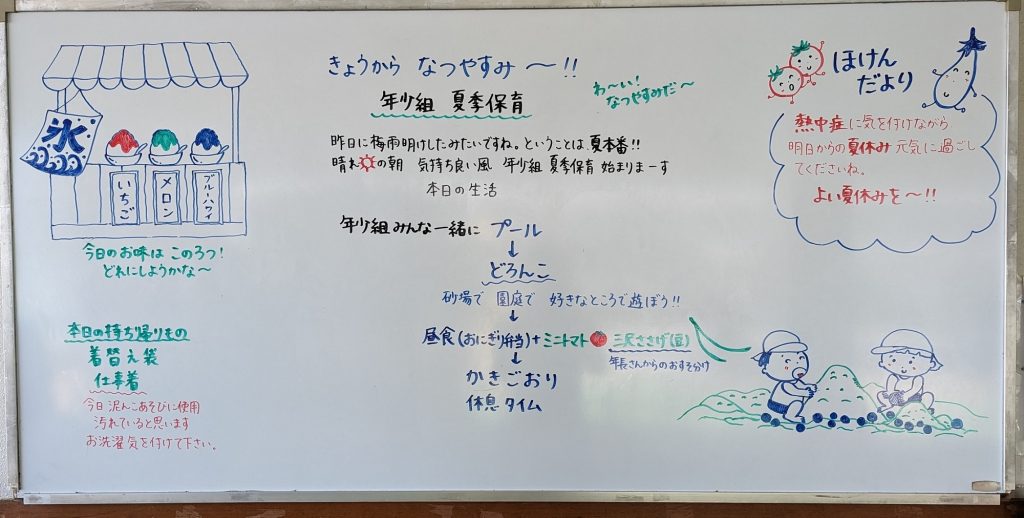 きょうから なつやすみ 〜!!
年少組 夏季保育
わ〜い!
なつやすみだ〜
昨日に梅雨明けしたみたいですね。ということは夏本番!!
晴れの朝 気持ち良い風 年少組 夏季保育 始まりまーす
本日の生活
年少組みんな一緒に プール
↓
どろんこ
砂場で 園庭で 好きなところで遊ぼう!!
↓
昼食(おにぎり弁当)+ミニトマト 三尺ささげ(豆)
年長さんからのおすそ分け
↓
かきごおり
休息タイム
氷
いちご
メロン
ブルーハワイ
今日のお味は このろつ!
どれにしようかな〜
本日の持ち帰りもの
着替え袋
仕事着
今日 泥んこあそびに使用
汚れていると思います
お洗濯気を付けて下さい。
ほけん
だより
熱中症に気を付けながら
明日からの夏休み 元気に過ごし
てくださいね。
よい夏休みを〜!!